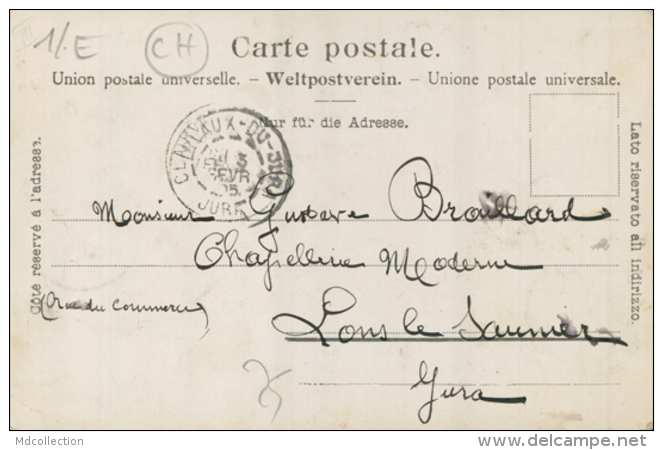 1/.E
CH
Carte postale.
Union postale universelle. – Weltpostverein. – Unione postale universale.
Nur für die Adresse.
CLAIRVAUX-DU-JURA
3
FEVR
05
JURA
Côté réservé à l'adresse.
Lato riservato all indirizzo.
Monsieur Gustave Brouillard
Chapellerie Moderne
(rue du Commerce)
Lons le Saunier
Jura
Mdcollection
delcampe.net